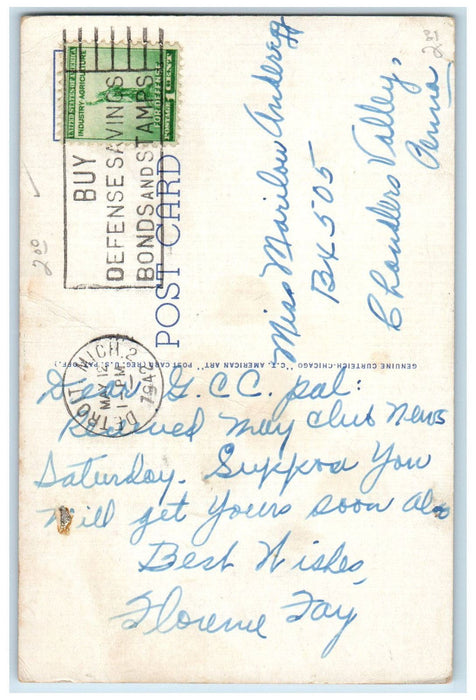 UNITED STATES OF AMERICA
INDUSTRY AGRICULTURE
FOR DEFENSE
BUY
DEFENSE SAVINGS
BONDS AND STAMPS
POST CARD
DETROIT, MICH. 2
MAY 12
1 PM
1942
2 00
2 00
Miss Marilou Anderegg
BX 505
Chandlers Valley,
Penna
GENUINE CURTEICH-CHICAGO "C.T. AMERICAN ART" POST CARD (REG. U.S. PAT. OFF.)
Dear G.C.C. pal:
Received May Club News
Saturday. Suppose You
will get yours soon also
Best Wishes,
Florence Fay